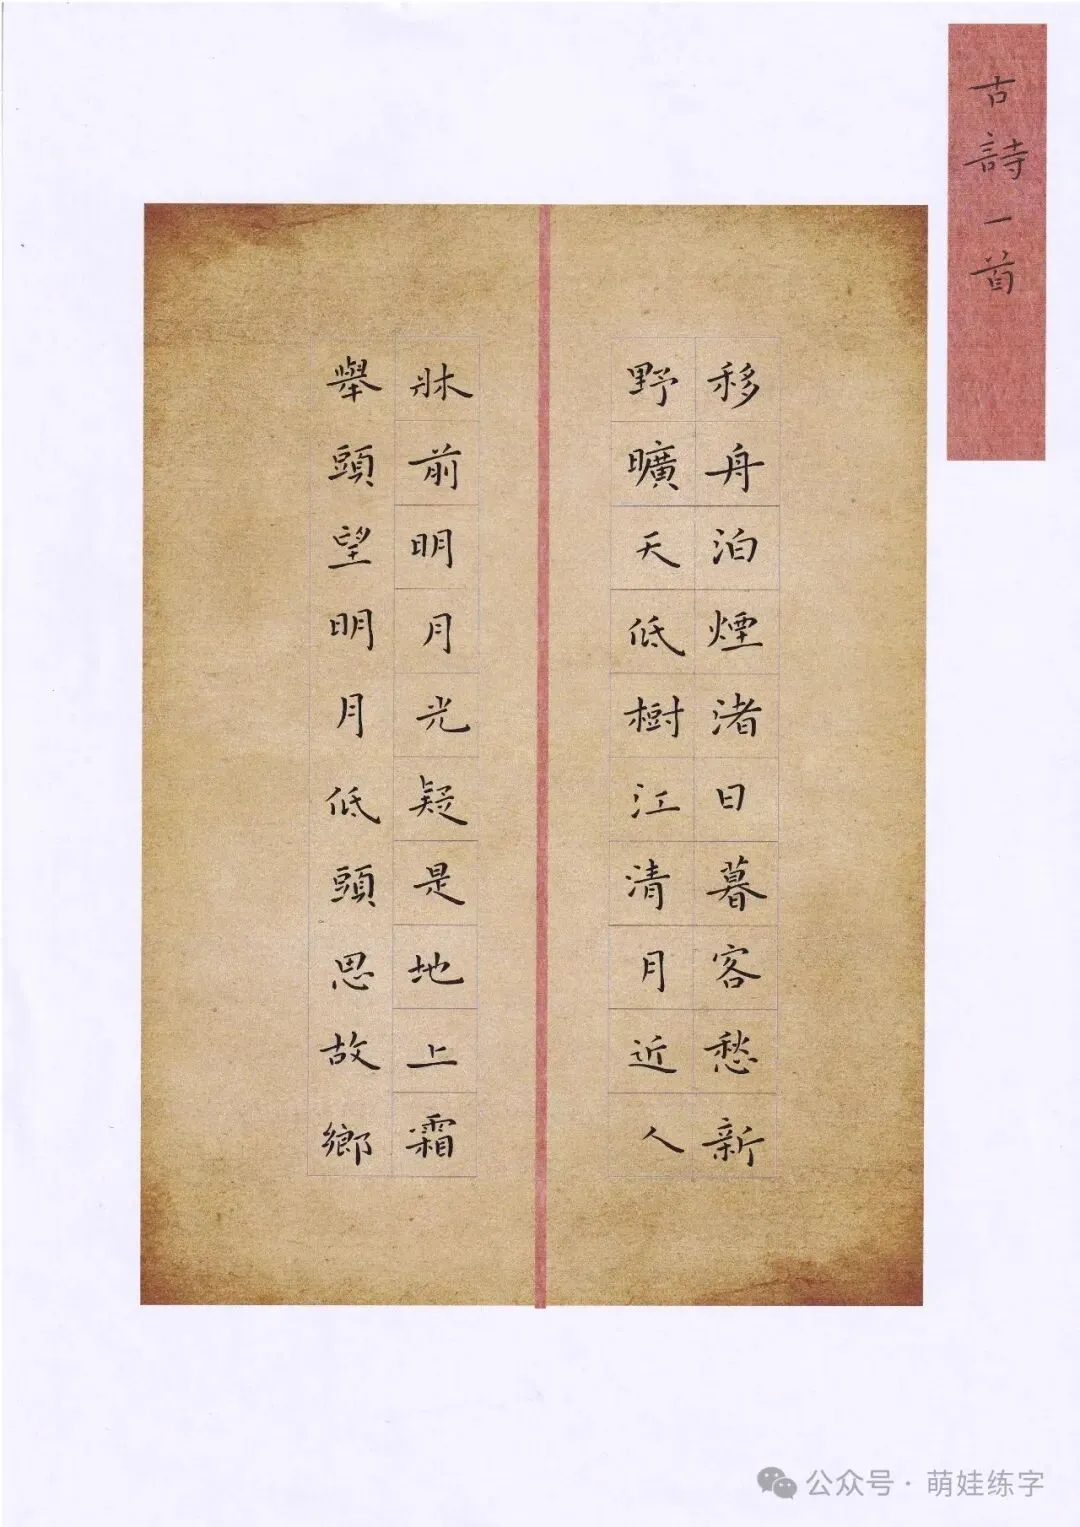 古詩一首
移舟泊煙渚日暮客愁新
野曠天低樹江清月近人
牀前明月光疑是地上霜
舉頭望明月低頭思故鄉
公众号·萌娃练字